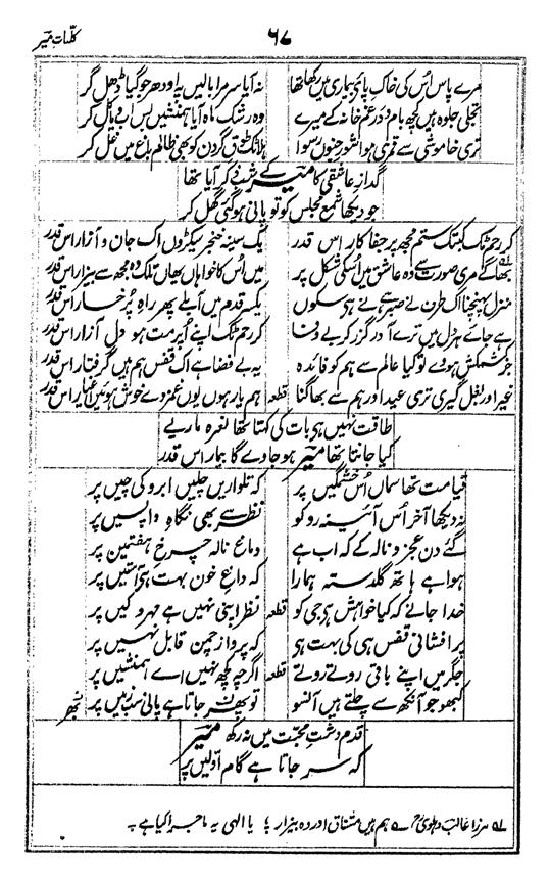 کلیات میر
۶۷
مرے پاس اُس کی خاک پائے بیماری میں رکھا تھا نہ آیا سر مرا بالیں پہ اودھر جو گیا ڈھل کر
تجلی جلوہ ہیں کچھ بام و در غم خانہ کے میرے وہ رشک ماہ آیا ہمنشیں بس اب دیا گل کر
تری خاموشی سے قمری ہوا شور جنوں رسوا ہلا ٹک طوق گردن کو بھی ظالم باغ میں غل کر
گداز عاشقی کا میر کے شب ذکر آیا تھا
جو دیکھا شمع مجلس کو تو پانی ہو گئی گھل کر
کر رحم ٹک کب تک ستم مجھ پر جفا کار اس قدر یک سینہ خنجر سیکڑوں اک جان و آزار اس قدر
بھاگے مری صورت سے وہ عاشق میں اُسکی شکل پر میں اُس کا خواہاں یھاں تلک وہ مجھ سے بیزار اس قدر
منزل پہنچنا اک طرف نے صبر ہے نے ہی سکوں یکسر قدم میں آبلے پھر راہ پر خار اس قدر
ہے جائے ہر دل میں تری آ در گزر کر بے وفا کر رحم ٹک اپنے اُپر مت ہو دل آزار اس قدر
جز کشمکش ہووے تو کیا عالم سے ہم کو فائدہ یہ بے فضا ہے اک قفس ہم ہیں گرفتار اس قدر
غیر اور بغل گیری تری عید اور ہم سے بھاگنا قطعہ ہم یار ہوں یوں غمزدے خوش ہوئیں اغیار اس قدر
طاقت نہیں ہی بات کی کہتا تھا نعرہ ماریے
کیا جانتا تھا میر ہو جاوے گا بیمار اس قدر
قیامت تھا سماں اُس خشمگیں پر کہ تلواریں چلیں ابرو کی چیں پر
نہ دیکھا آخر اُس آئینہ رو کو نظر سے بھی نگاہ واپسیں پر
گئے دن عجز و نالہ کے کہ اب ہے دماغ نالہ چرخ ہفتمیں پر
ہوا ہے ہاتھ گلدستہ ہمارا کہ داغ خون بہت ہی آستیں پر
خدا جانے کہ کیا خواہش ہی جی کو قطعہ نظر اپنی نہیں ہے مہر و کیں پر
پر افشانی قفس ہی کی بہت ہی کہ پرواز چمن قابل نہیں پر
جگر میں اپنے باقی روتے روتے قطعہ اگرچہ کچھ نہیں اے ہمنشیں پر
کبھو جو آنکھ سے چلتے ہیں آنسو تو بھر جاتا ہے پانی سب زمیں پر
قدم دشت محبت میں نہ رکھ میر
کہ سر جاتا ہے گام اولیں پر
۱ مرزا غالب دہلوی ہم ہیں مشتاق اور وہ بیزار؛ یا الٰہی یہ ماجرا کیا ہے۔